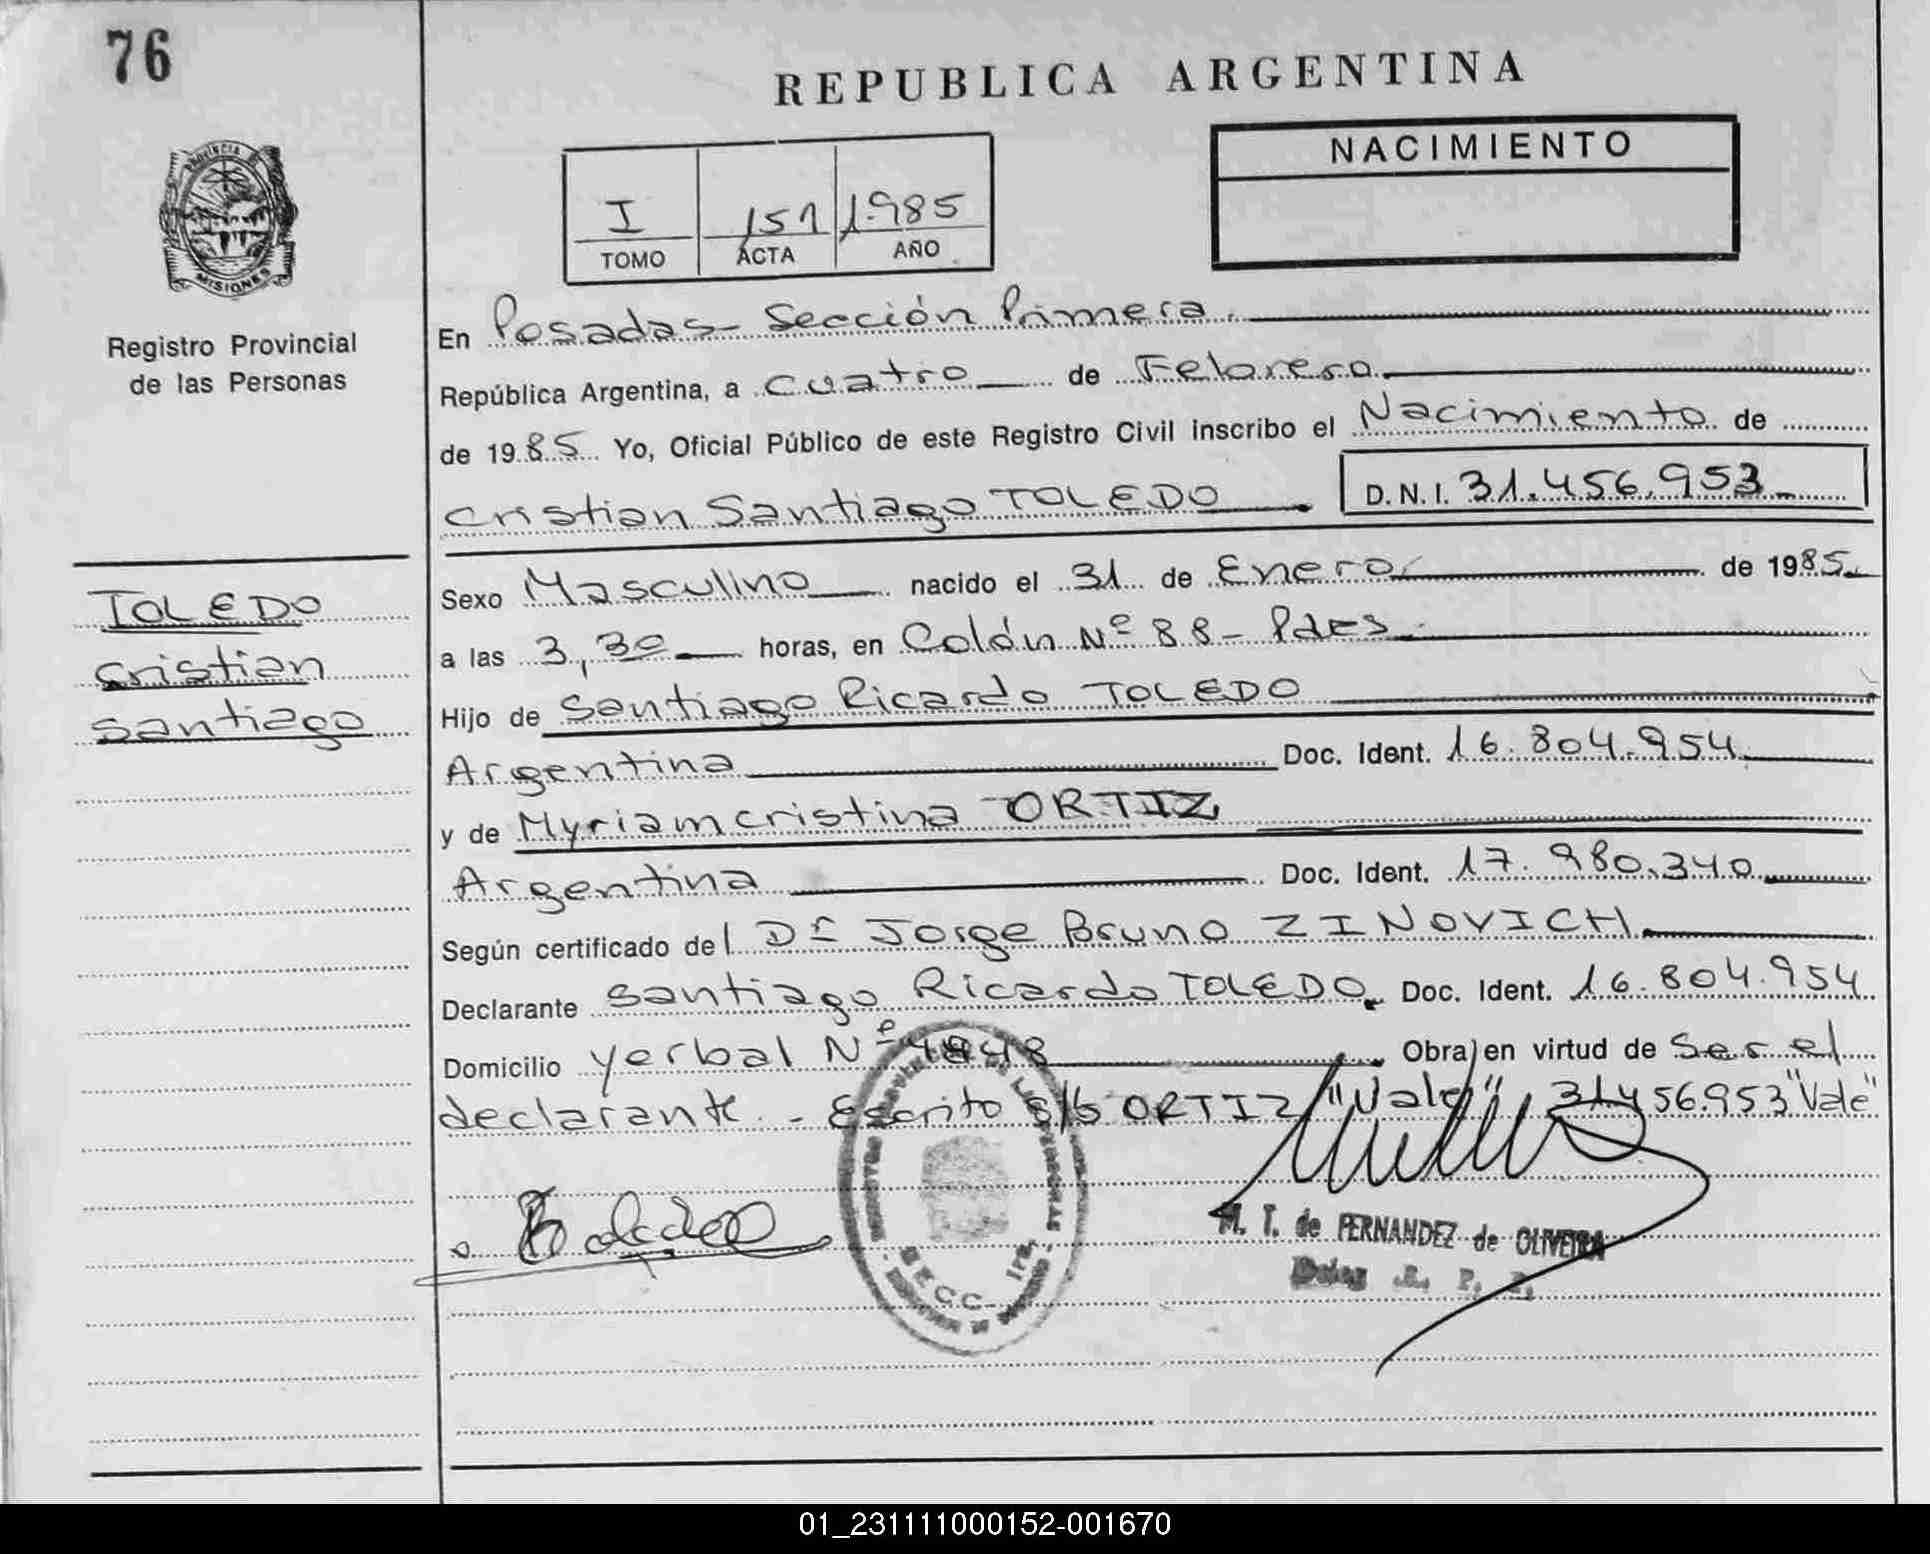 76
REPUBLICA ARGENTINA
PROVINCIA DE
MISIONES
Registro Provincial
de las Personas
I 151 1.985
TOMO ACTA AÑO
NACIMIENTO
En Posadas - Sección Primera.
República Argentina, a cuatro de Febrero
de 1985 Yo, Oficial Público de este Registro Civil inscribo el Nacimiento de
Cristian Santiago TOLEDO D.N.I. 31.456.953
TOLEDO
Cristian
Santiago
Sexo Masculino nacido el 31 de Enero de 1985
a las 3,30 horas, en Colón Nº 88 - Pdas.
Hijo de Santiago Ricardo TOLEDO
Argentina Doc. Ident. 16.804.954
y de Myriam cristina ORTIZ
Argentina Doc. Ident. 17.980.340
Según certificado del Dr Jorge Bruno ZINOVICH
Declarante Santiago Ricardo TOLEDO. Doc. Ident. 16.804.954
Domicilio yerbal Nº Obra en virtud de Ser el
declarante. - Escrito s/b ORTIZ "Vale" 31456.953 "Vale"
M. T. de FERNANDEZ de OLIVEIRA
SECC. 1ra.
01_231111000152-001670